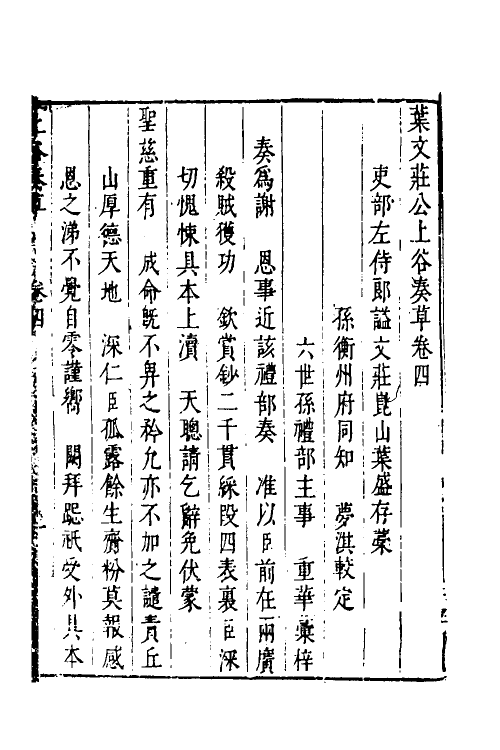 葉文莊公上谷奏草卷四
吏部左侍郎謚文莊崑山葉盛存藁
孫衡州府同知　夢淇較定
六世孫禮部主事　重華彙梓
奏為謝　恩事近該禮部奏　准以臣前在兩廣
殺賊獲功　欽賞鈔二千貫綵段四表裏臣深
切愧悚具本上瀆　天聰請乞辭免伏蒙
聖慈重有　成命既不畀之矜允亦不加之譴責丘
山厚德天地　深仁臣孤露餘生齎粉莫報感
恩之涕不覺自零謹嚮　闕拜跽祇受外具本
上谷奏草　卷四